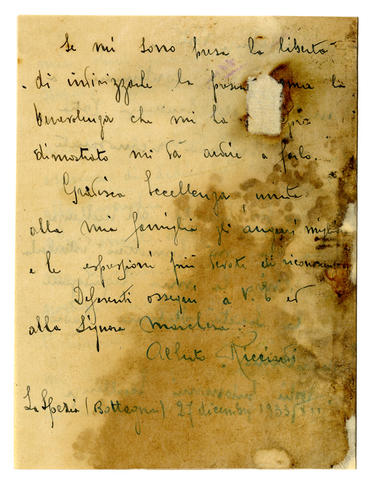 Se mi sono presa la libertà
di indirizzarle la ma la
benevolenza che mi
dimostrato mi dà ardire a farlo.
Gradisca Eccellenza, unita
alla mia famiglia gli auguri
e le espressioni più di
Deferenti ossequi a V. E. ed
alla Signora Marchesa.
Alberto
La Spezia (Bottagna) 27 dicembre 1933/XII